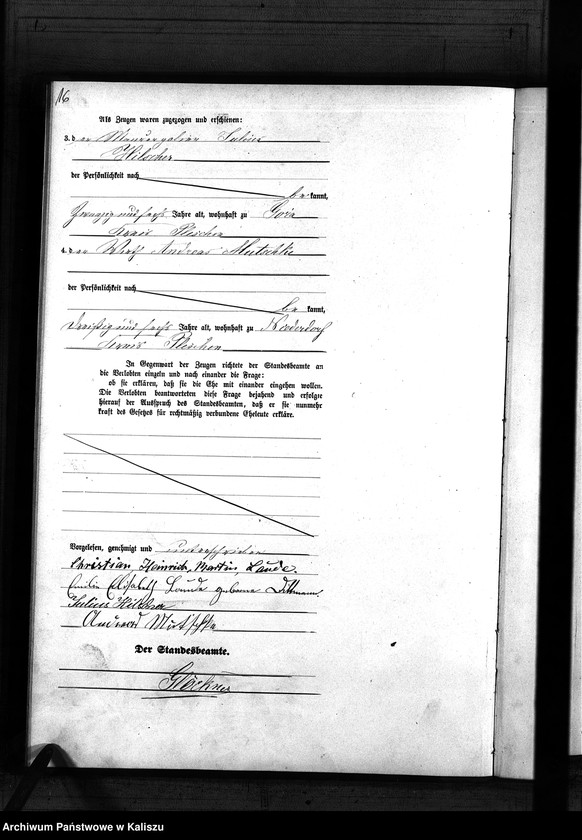 16
Als Zeugen waren zugezogen und erschienen:
3. der Maurergeselle Julius
Hilscher
der Persönlichkeit nach
be kannt,
zwanzig und sechs Jahre alt, wohnhaft zu
Kreis Pleschen
4. der Wirth Andreas Mutschke
der Persönlichkeit nach
be kannt,
dreißig und sechs Jahre alt, wohnhaft zu
Kreis Pleschen
In Gegenwart der Zeugen richtete der Standesbeamte an
die Verlobten einzeln und nach einander die Frage:
ob sie erklären, daß sie die Ehe mit einander eingehen wollen.
Die Verlobten beantworteten diese Frage bejahend und erfolgte
hierauf der Ausspruch des Standesbeamten, daß er sie nunmehr
kraft des Gesetzes für rechtmäßig verbundene Eheleute erkläre.
Vorgelesen, genehmigt und unterschrieben
Christian, Heinrich, Martin, Laude.
Emilie Elisabeth Laude geborene Dittmann
Julius Hilscher
Andreas Mutschke
Der Standesbeamte.
Glöckner
Archiwum Państwowe w Kaliszu